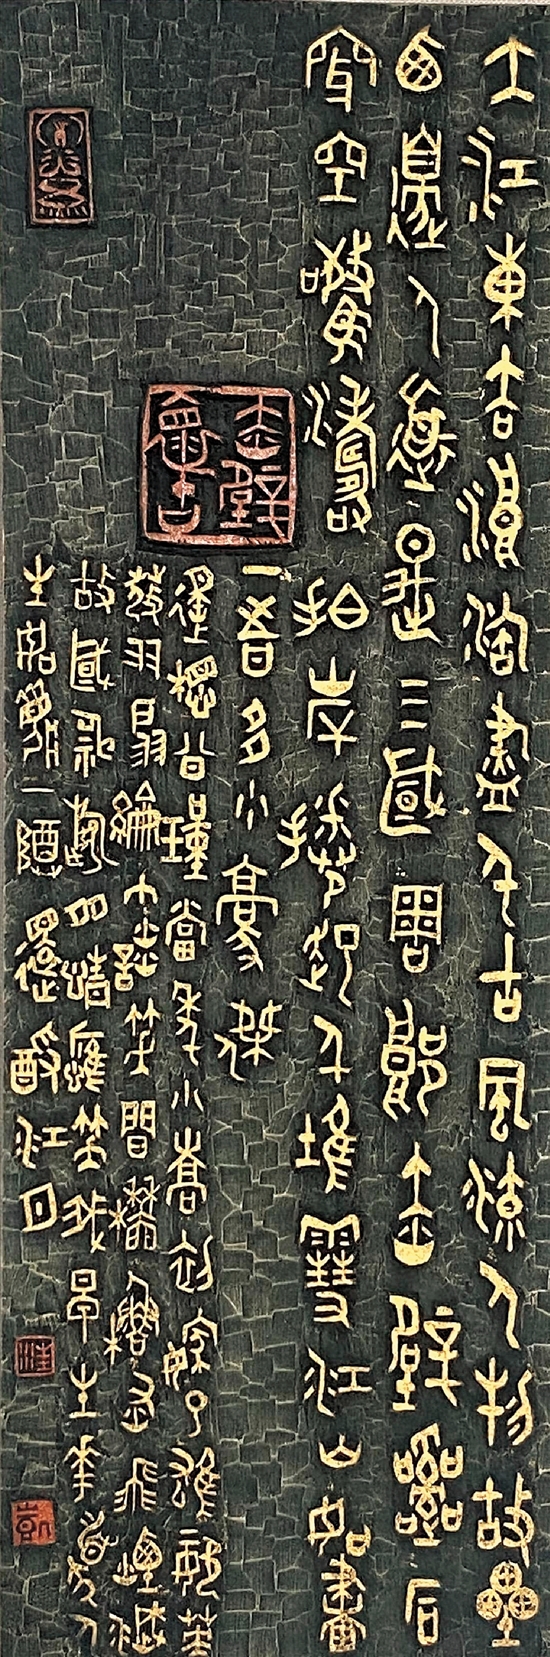 大江東去浪淘盡千古風流人物故壘
西邊人道是三國周郎赤壁亂石
穿空驚濤拍岸捲起千堆雪江山如畫
一時多少豪傑
遙想公瑾當年小喬初嫁了雄姿英
發羽扇綸巾談笑間檣櫓灰飛煙滅
故國神遊多情應笑我早生華髮人
生如夢一尊還酹江月
赤壁懷古